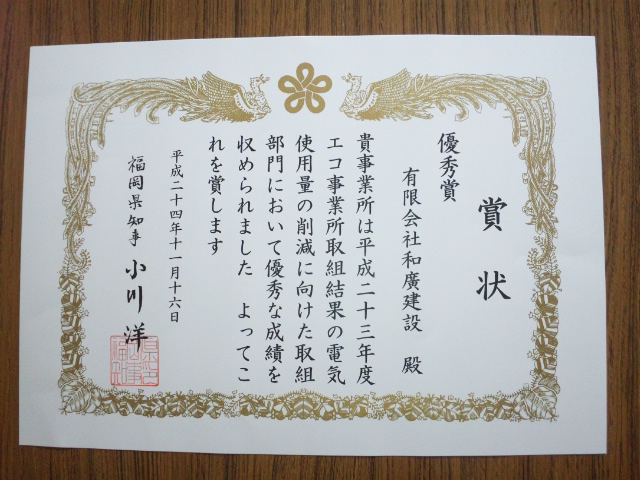 賞状
優秀賞
有限会社和廣建設 殿
貴事業所は平成二十三年度
エコ事業所取組結果の電気
使用量の削減に向けた取組
部門において優秀な成績を
収められました よってこ
れを賞します
平成二十四年十一月十六日
福岡県知事 小川洋